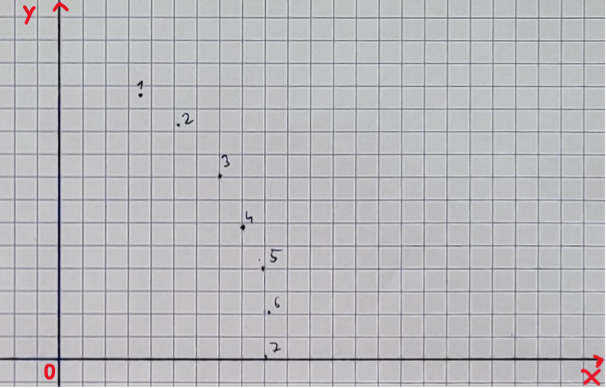 Y
1
2
3
4
5
6
7
0
X